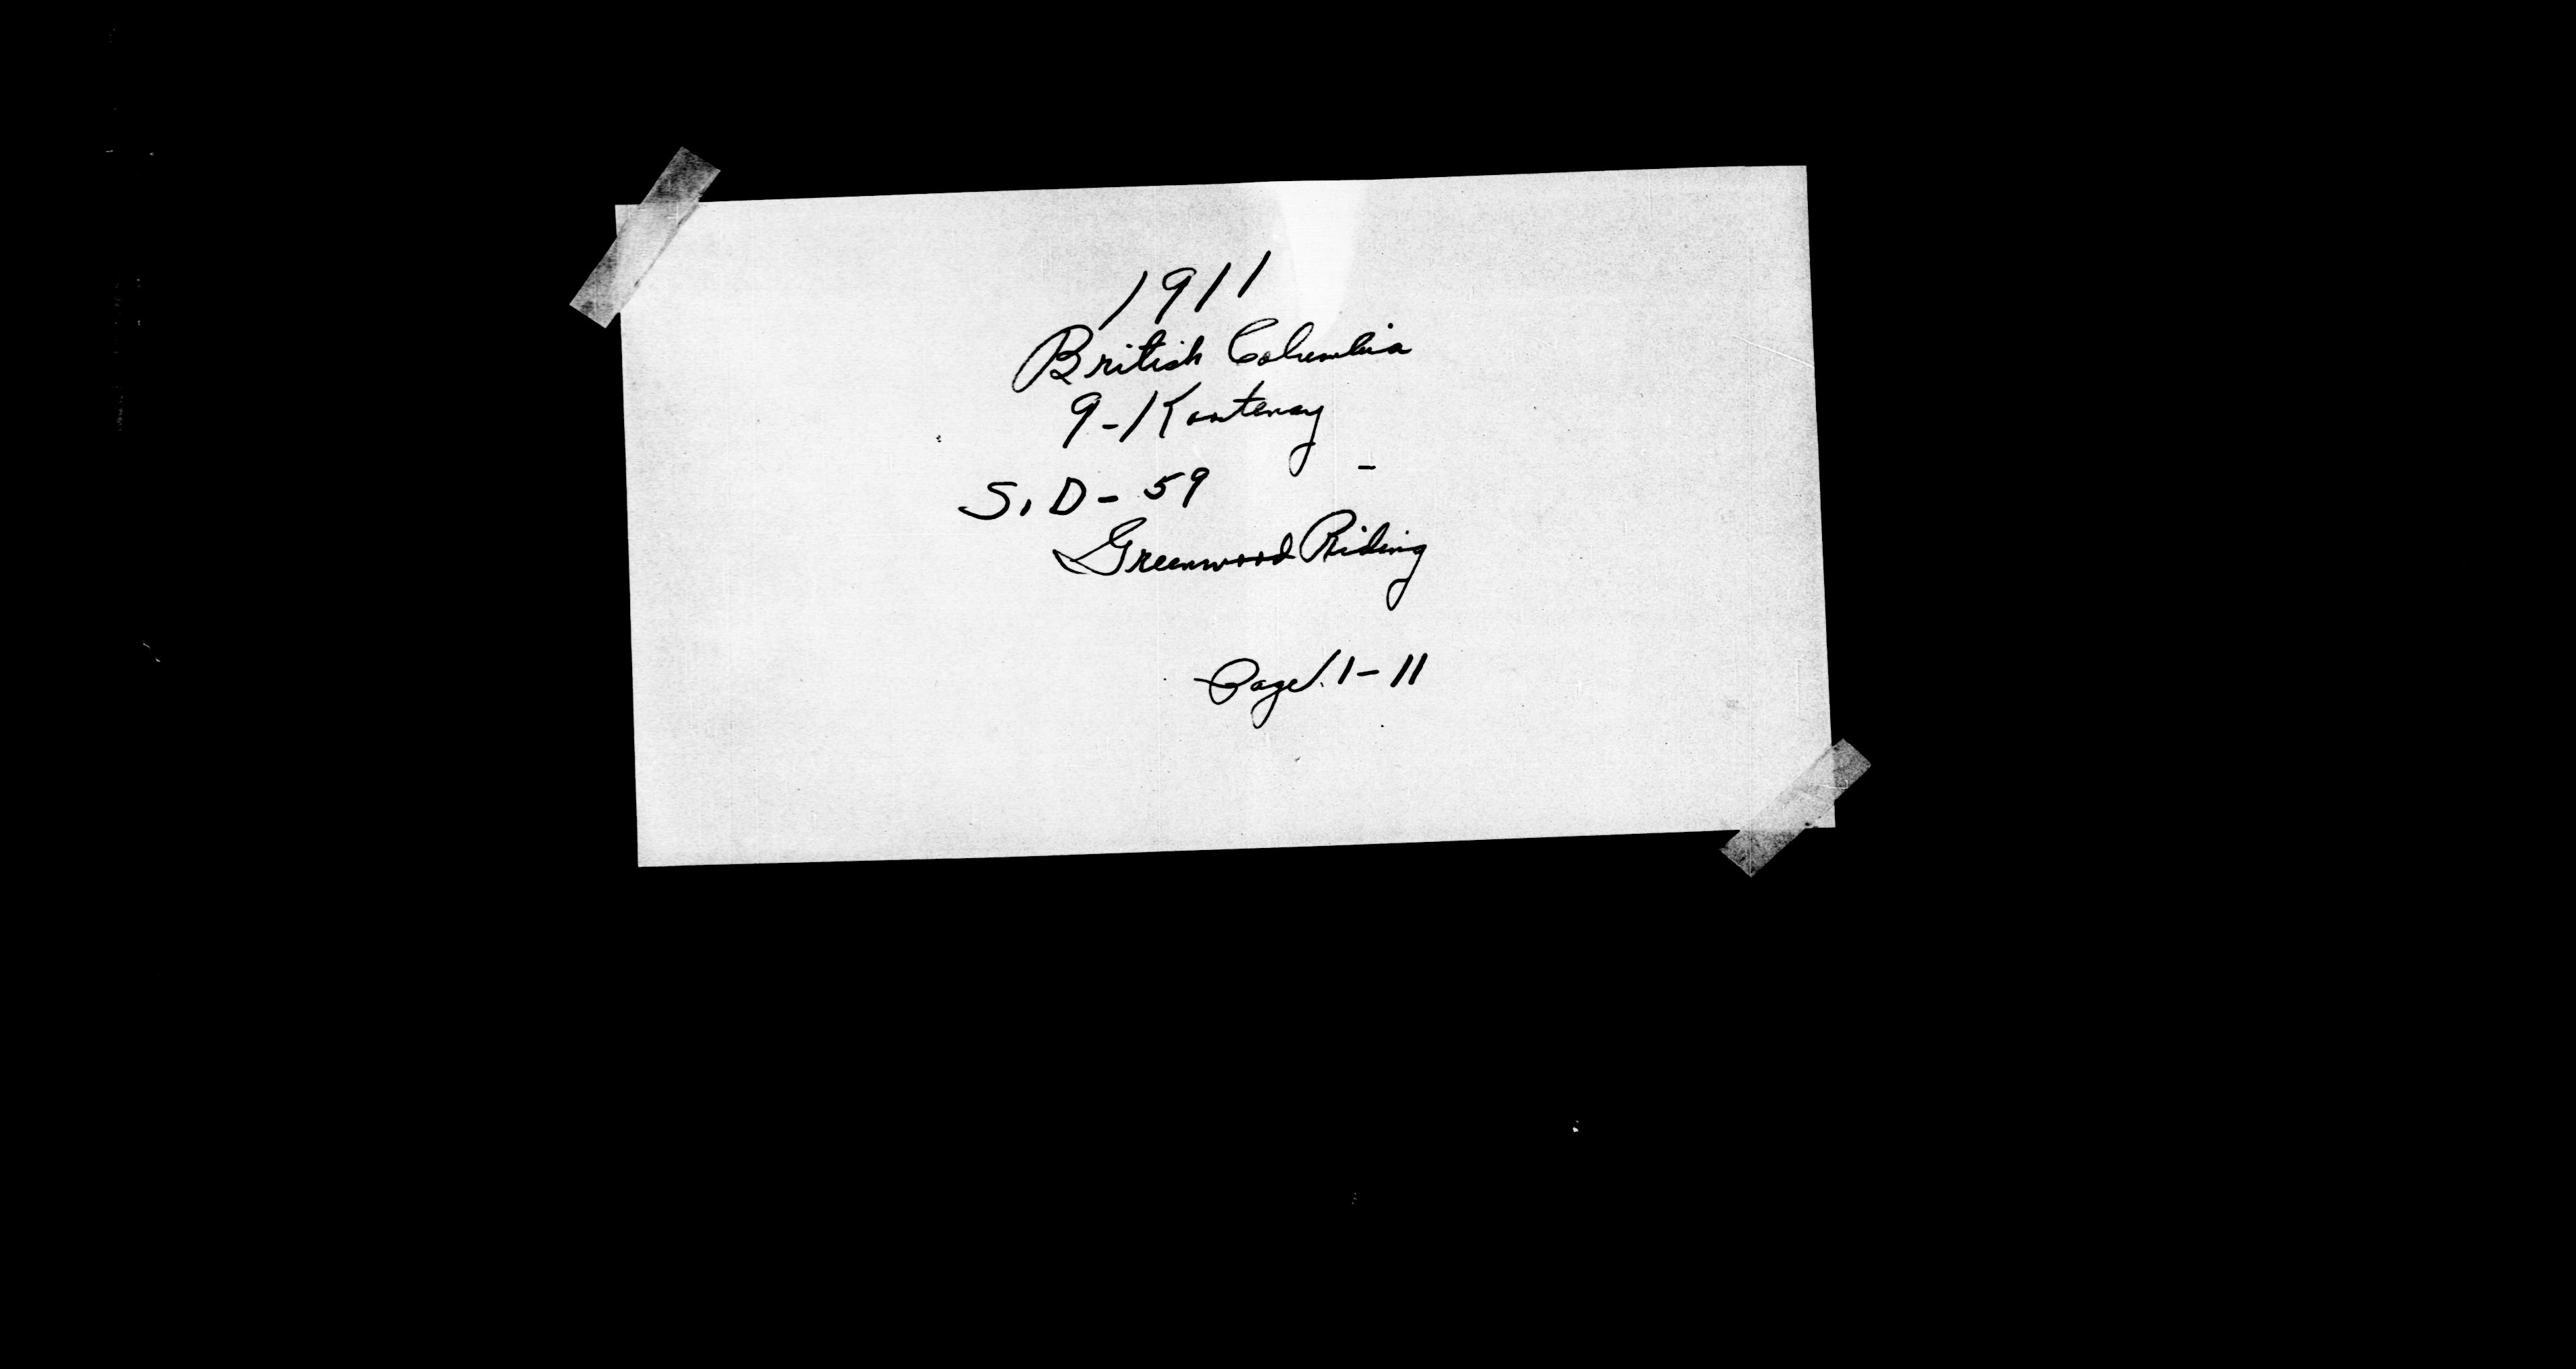 1911
British Columbia
9-Kootenay
S.D-59
Greenwood Riding
Page 1-11